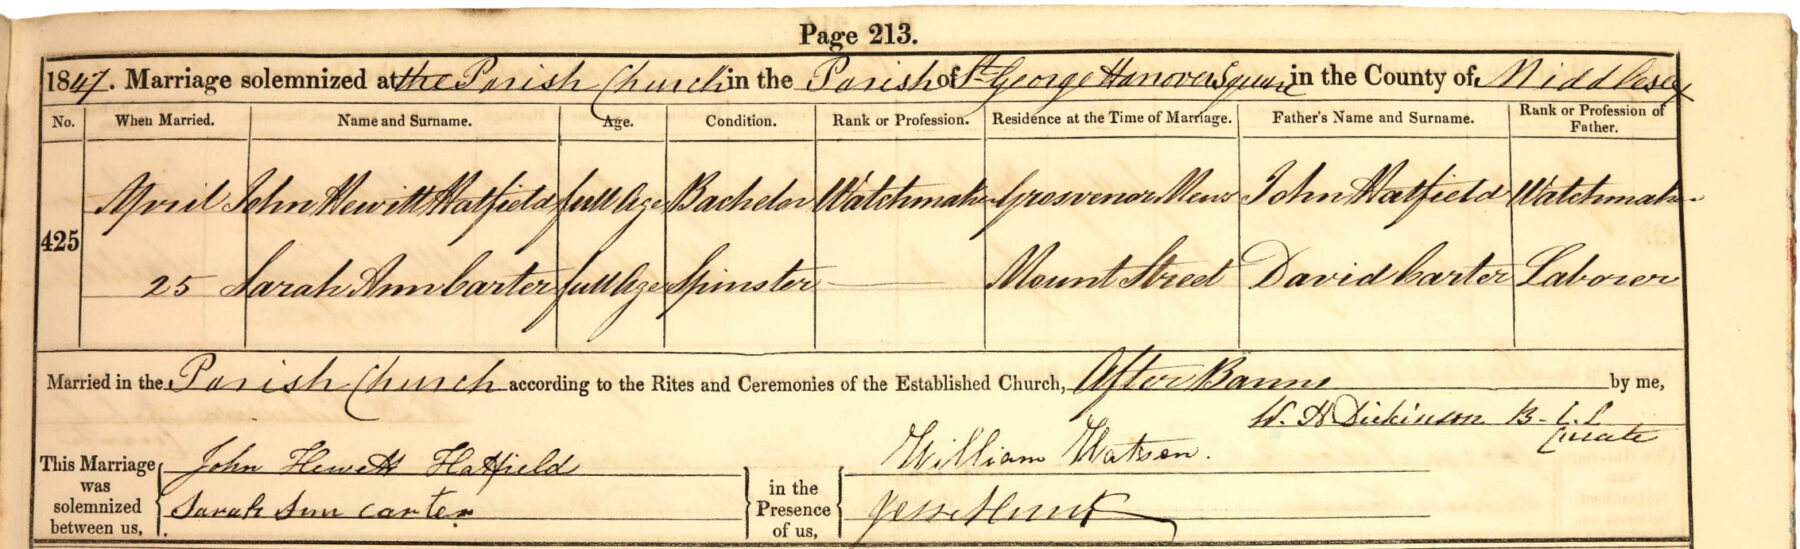 Page 213.
1847. Marriage solemnized at the Parish Church in the Parish of St George Hanover Square in the County of Middlesex
No. When Married. Name and Surname. Age. Condition. Rank or Profession. Residence at the Time of Marriage. Father's Name and Surname. Rank or Profession of Father.
April John Hewitt Hatfield full Age Bachelor Watchmaker Grosvenor Mews John Hatfield Watchmaker
425
25 Sarah Ann Carter full Age Spinster — Mount Street David Carter Laborer
Married in the Parish Church according to the Rites and Ceremonies of the Established Church, After Banns by me,
W. H Dickinson B.C.L
Curate
This Marriage was solemnized between us, John Hewett Hatfield
Sarah Ann Carter
in the Presence of us, William Watson.
Jesse Hunt